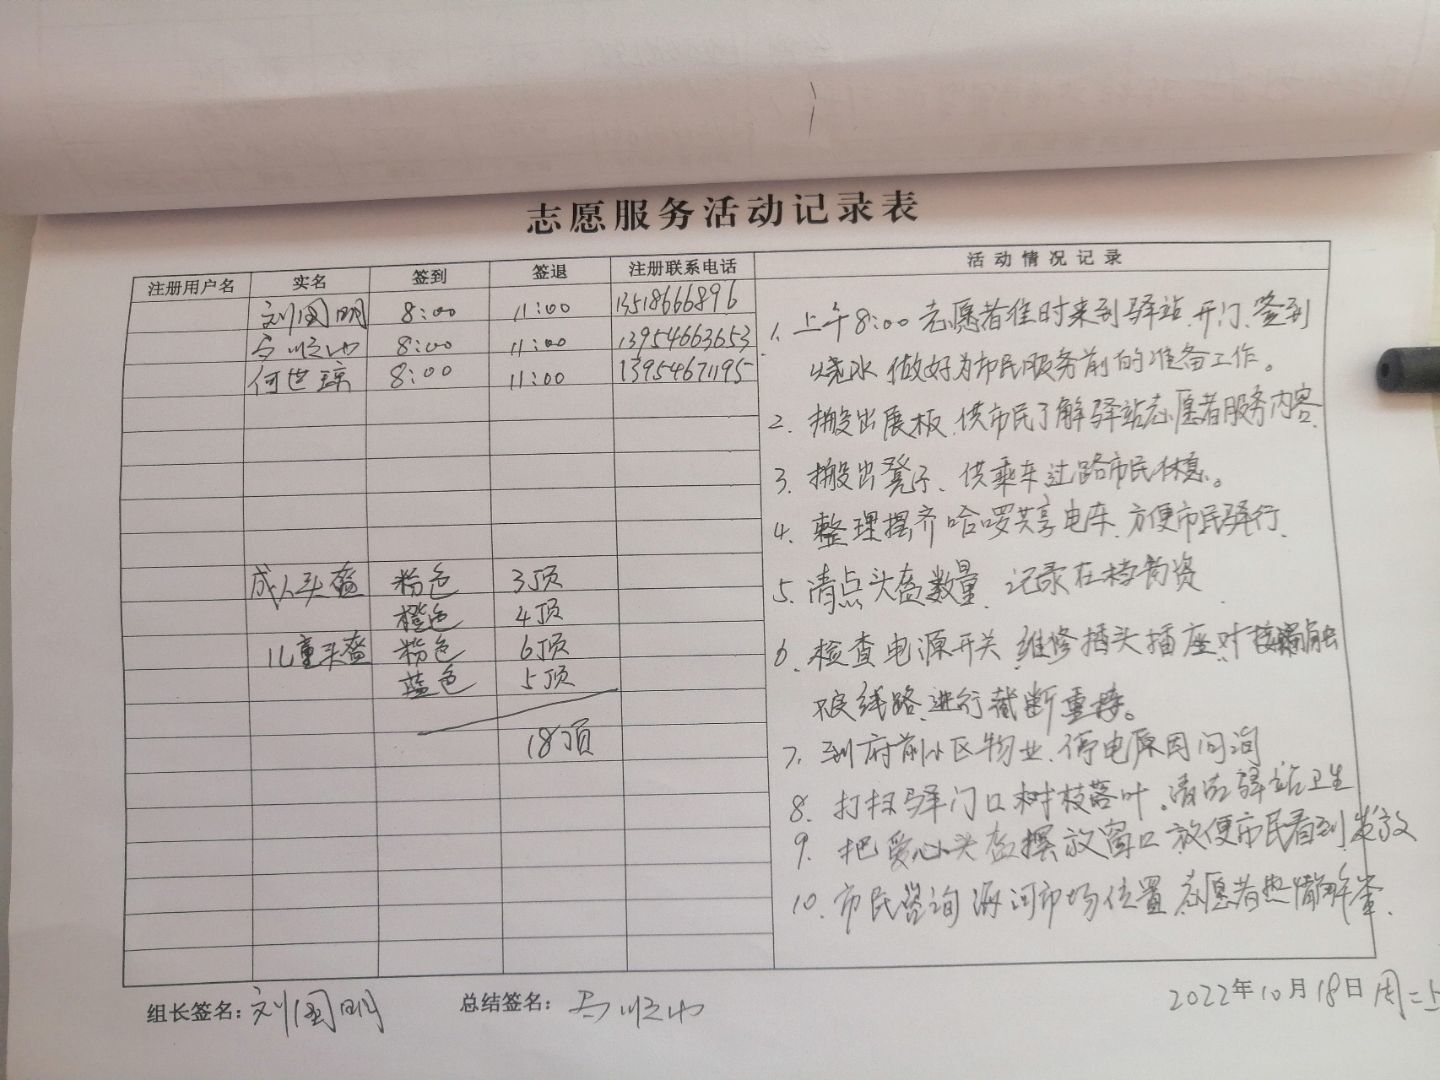 志愿服务活动记录表
注册用户名 实名 签到 签退 注册联系电话 活动情况记录
刘国明 8:00 11:00 13518666896
8:00 11:00 13954663653
何世琼 8:00 11:00 13954671195
成人头盔 粉色 3顶
橙色 4顶
儿童头盔 粉色 6顶
蓝色 5顶
18顶
1. 上午8:00志愿者准时来到驿站、开门、签到
烧水 做好为市民服务前的准备工作。
2. 搬出展板、供市民了解驿站志愿者服务内容.
3. 搬出凳子、供乘车过路市民休息。
4. 整理摆齐哈啰共享电车、方便市民骑行.
5. 清点头盔数量、记录在档
6. 检查电源开关、维修插头插座、对接触
不良线路、进行截断重接。
7. 到府前小区物业、停电原因问询
8. 打扫驿门口树枝落叶。清洁驿站卫生
9. 把爱心头盔摆放窗口放便市民看到、发放
10. 市民咨询海河市场位置志愿者热情解答.
组长签名：刘国明 总结签名：
2022年10月18日周二上